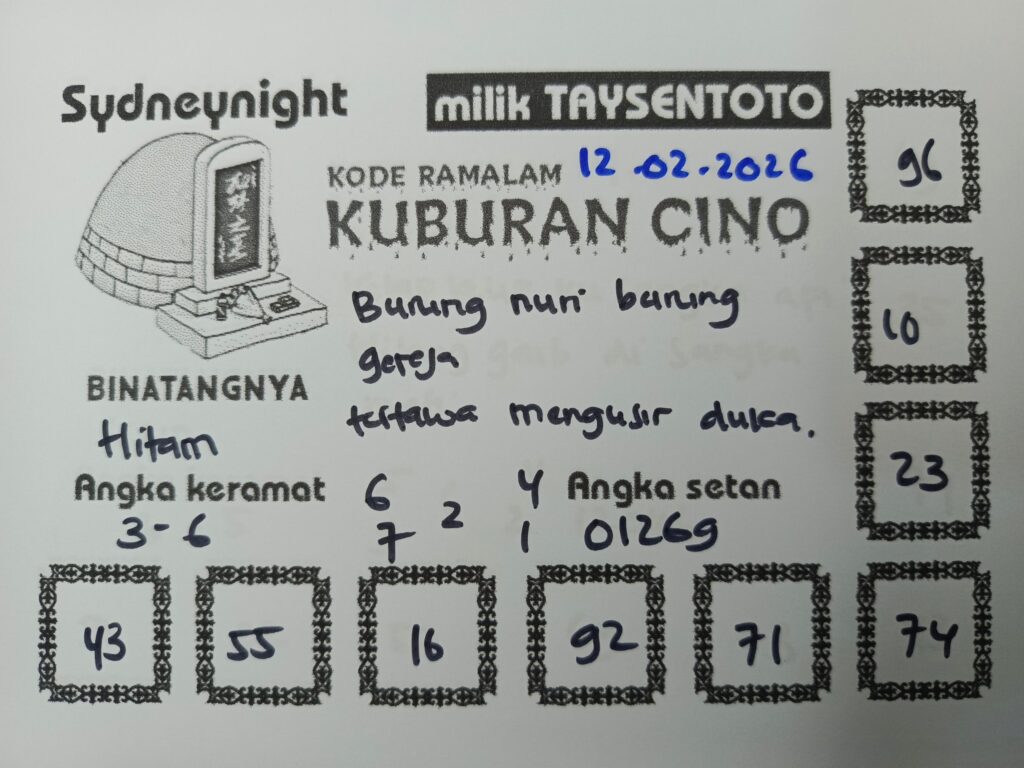 Sydneynight
milik TAYSENTOTO
KODE RAMALAM 12.02.2026
KUBURAN CINO
Burung nuri burung
gereja
tertawa mengusir duka.
BINATANGNYA
Hitam
Angka keramat
3-6
6
7 2
4
1
Angka setan
01269
96
10
23
43 55 16 92 71 74